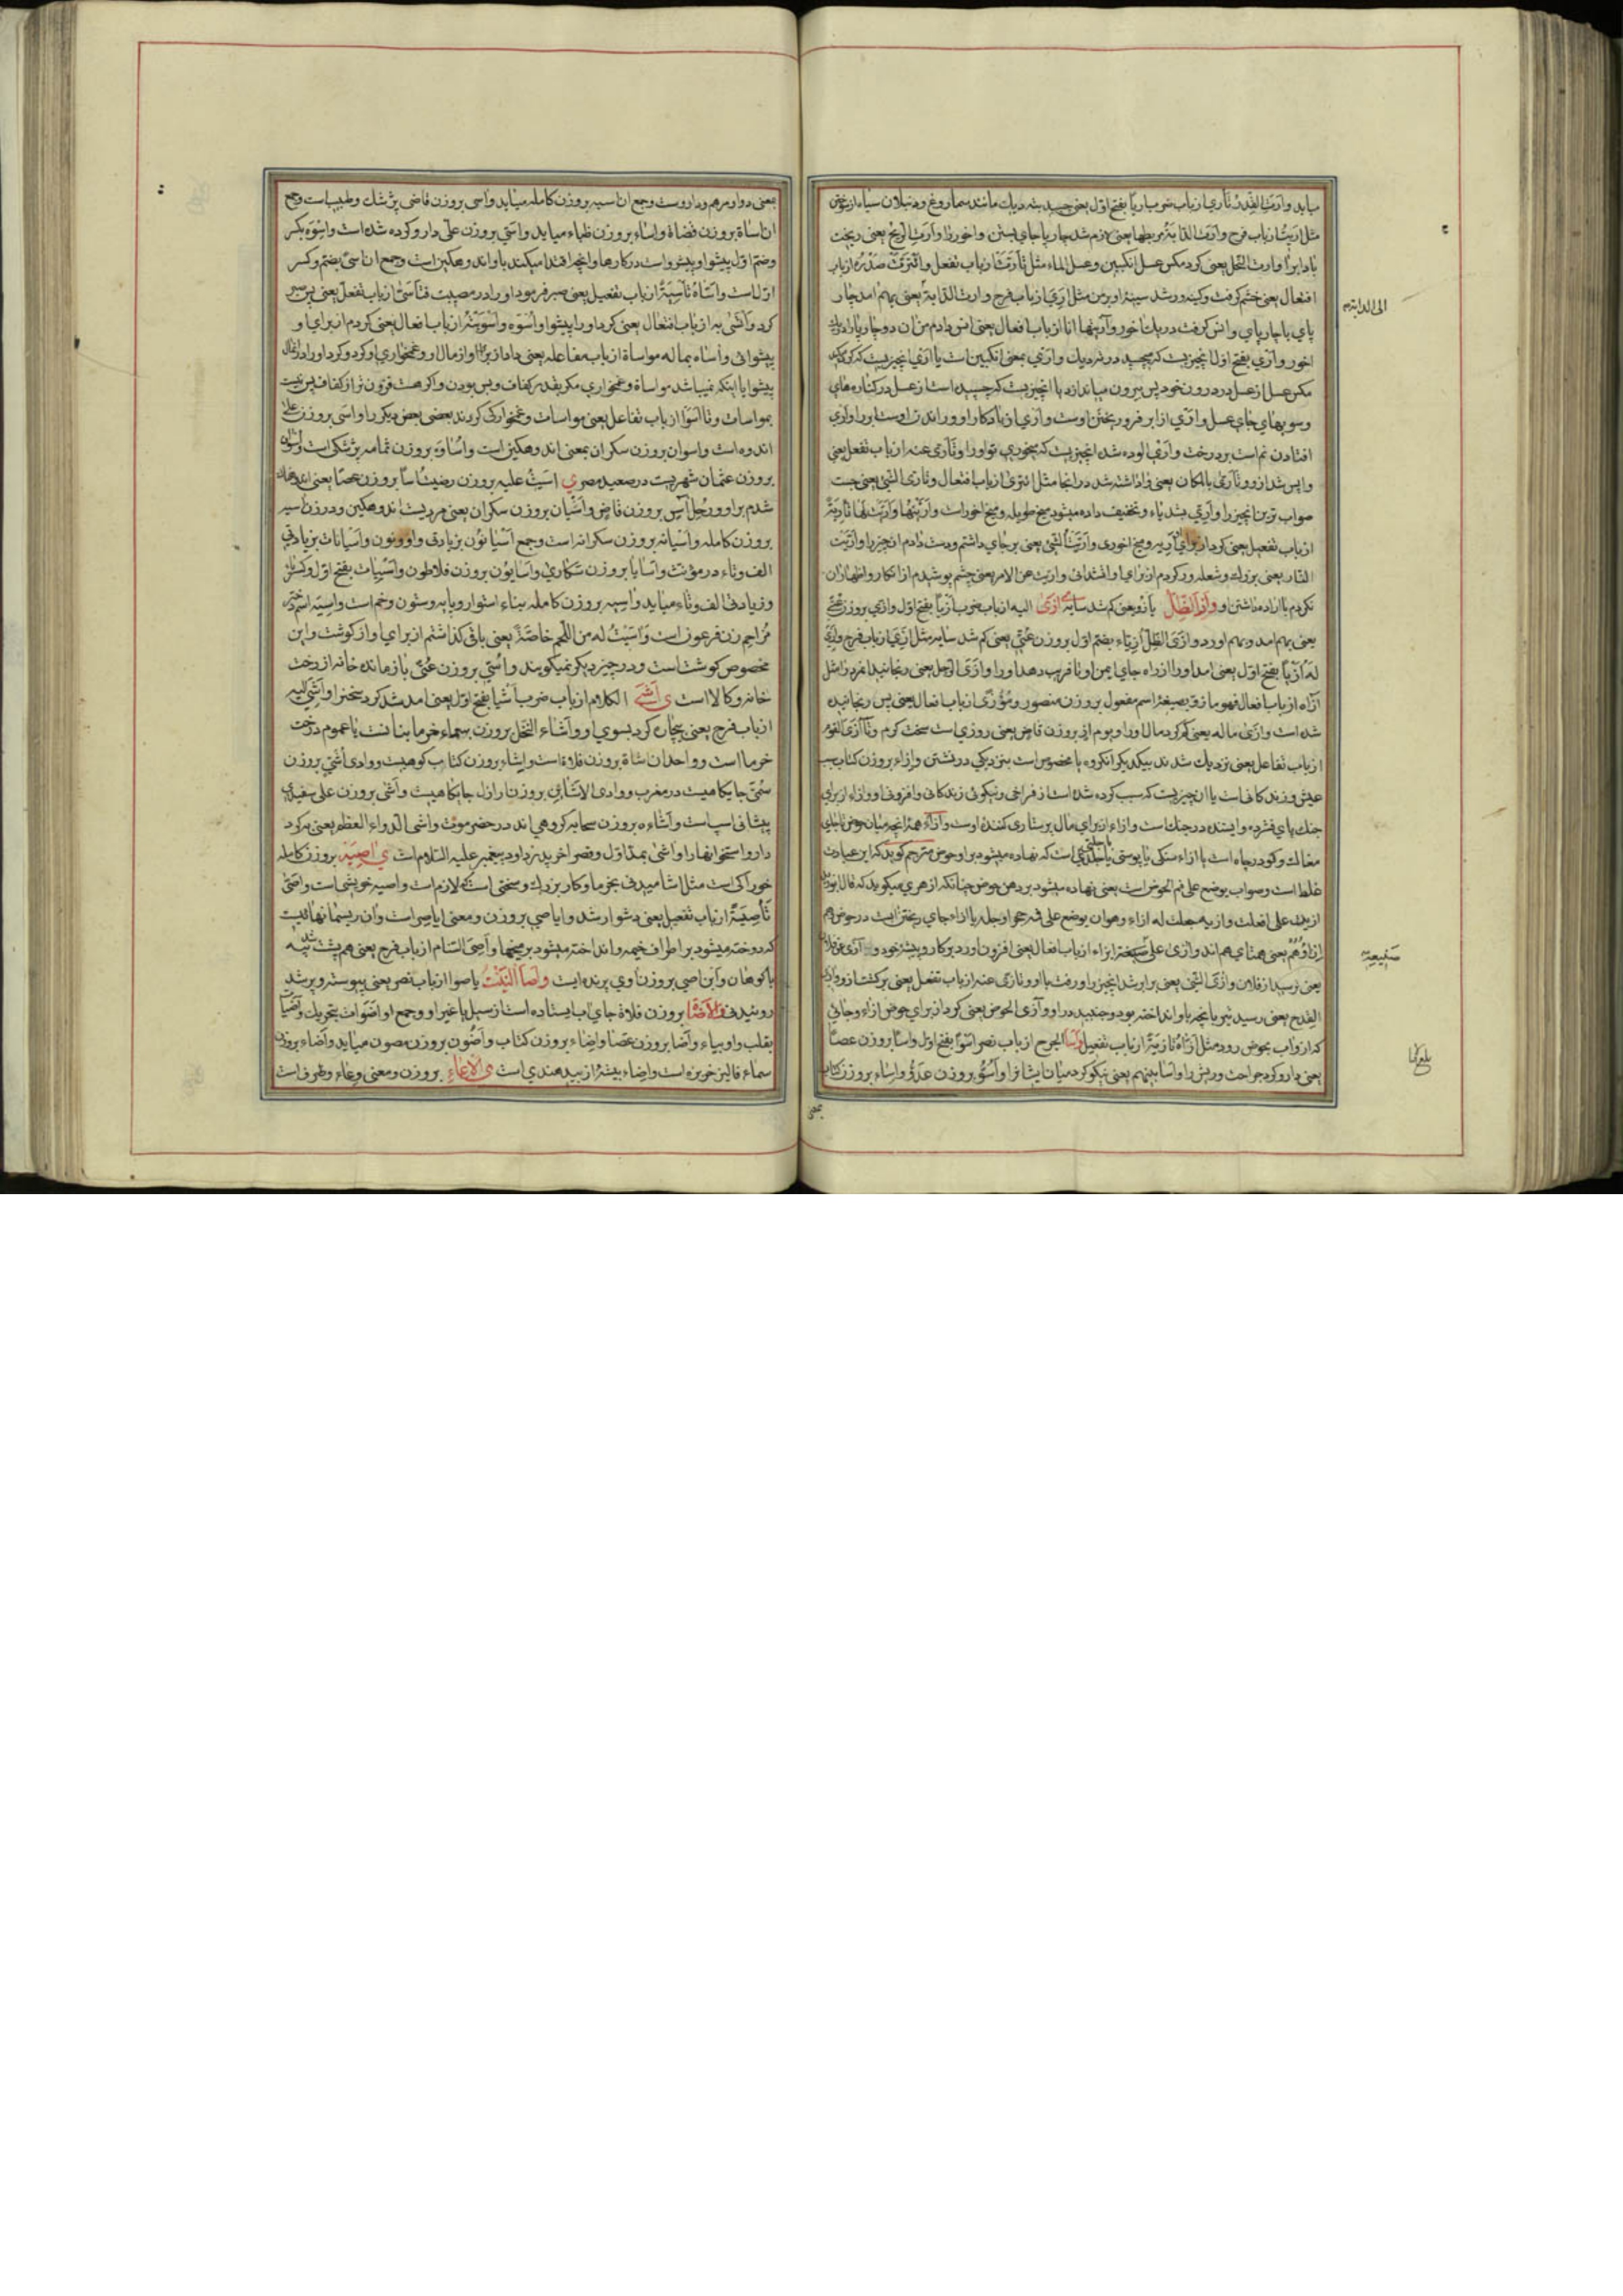 میاید وارت القدر تاری از باب ضرب اریا بفتح اول یعنی چسبید بته دیک مانند سماروغ و دنبلان سیاه از سوختن
مثل اریت از باب فرح وارت الدابة مربطها یعنی لازم شد چارپا جای بستن واخور را وارت الریح یعنی ریخت
باد ابر را وارت النحل یعنی کرد مکس عسل انکبین وعسل الماء مثل تارت از باب تفعل وائترت صدره از باب
افتعال یعنی خشم کرفت وکینه ور شد سینه او بر من مثل اری از باب فرح وارت الدابة یعنی بهم امد چار
پای با چارپای وانس کرفت در یک اخور وآریتها انا از باب افعال یعنی انس دادم من ان دو چارپا را در یک
اخور واری بفتح اول انچیزیست که بچسبد در ته دیک واری بمعنی انکبین است یا اری انچیزیست که کرد اورد
مکس عسل از عسل در درون خود پس بیرون میاندازد یا انچیزیست که چسبیده است از عسل در کناره های
وسویهای جای عسل واری از ابر فرو ریختن اوست واری از باد کار او وراندن اوست ابر را واری
افتادن نم است بر درخت واری الوده شد انچیزیست که بخوری تو او را وتاری عنه از باب تفعل یعنی
واپس شد از او وتاری بالمکان یعنی واداشته شد در انجا مثل ائتری از باب افتعال وتاری الشئ یعنی جست
صواب ترین انچیز را واری بشد یاء وتخفیف داده میشود میخ طویله ومیخ اخور است واریتها واریت لها تاریة
از باب تفعیل یعنی کردم از برای اریه ومیخ اخوری واریت الشئ یعنی بر جای داشتم ودست دادم انچیز را واریت
النار یعنی بزرک وشعله ور کردم از برای او اتشدانی واریت عن الامر یعنی چشم پوشیدم از انکار واظهاران
نکردم با اراده داشتن او و واز الظل یازو یعنی کم شد سایه ی ازی الیه از باب ضرب ازیا بفتح اول وازی بروزن عتی
یعنی بهم امد وبهم اورد وازی الظل ازیاء بضم اول بروزن عتی یعنی کم شد سایه مثل ازی از باب فرح وازی
له ازیا بفتح اول یعنی امد او را از راه جای ایمن او تا فریب دهد او را وازی الرجل یعنی رنجانید انمرد را مثل
آزاه از باب افعال فهو مازو بصیغه اسم مفعول بروزن منصور وموزی از باب افعال یعنی پس رنجانیده
شده است وازی ماله یعنی کم کرد مال او را ویوم ازی بروزن قاض یعنی روزی است سخت کرم وتآزی القوم
از باب تفاعل یعنی نزدیک شدند بیکدیکر انکروه یا مخصوص است بنزدیکی در نشستن وازاء بروزن کتاب سبب
عیش وزندکانی است یا ان چیزیست که سبب کرده شده است از فراخی ونیکوئی زندکانی وافزونی او وازاء از برای
جنک پای فشرده وایستنده در جنک است وازاء از برای مال پرستاری کننده اوست وازاء همه انچه میان حوض تا جای
مغاک وکود در چاه است یا ازاء سنکی یا پوستی یا جلدی است که نهاده میشود بر او حوض مترجم کوید که این عبارت
غلط است وصواب یوضع علی فم الحوض است یعنی نهاده میشود بر دهن حوض چنانکه ازهری میکوید که قال ابوزید
ازیت علی افعلت وازیه جعلت له ازاء وهو ان یوضع علی فمه حجر او جلد یا ازاء جای ریختن ابست در حوض وهم
ازاؤهم یعنی همتای هم اند وازی علی صنیعته ازاء از باب افعال یعنی افزون اورد بر کار وپیشه خود وآزی عن فلان
یعنی ترسید از فلان وازی الشئ یعنی برابر شد انچیز را ورفت با او وتازی عنه از باب تفعل یعنی برکشت از او وازی
القدح یعنی رسید تیر بانچه باو انداخته بود وجنبید در او وآزی الحوض یعنی کرد از برای حوض ازاء وجائی
که از واب بحوض رود مثل ازاه تازیة از باب تفعیل واسا الجرح از باب نصر اسوا بفتح اول واسا بروزن عصا
یعنی دارو کرد جراحت وریش را واسا بینهم یعنی نیکو کرد میان ایشان را واسو بروزن عدو واساء بروزن کتاب
الی الدابة م
صنیعته
بلغ
یعنی
بمعنی دوا ومرهم وداروست وجمع ان اسیه بروزن کامله میاید واسی بروزن قاضی پزشک وطبیب است وجمع
ان اساة بروزن قضاة واساء بروزن ظباء میاید واسی بروزن علی دارو کرده شده است واسوه بکسر
وضم اول پیشوا وپیشرو است در کارها وانچه اقتدا میکنند باو اندوهکین است وجمع ان اسی بضم وکسر
اول است واساه تاسیة از باب تفعیل یعنی صبر فرمود او را در مصیبت فتاسی از باب تفعل یعنی پس صبر
کرد وائتسی به از باب افتعال یعنی کرد او را پیشوا واسوه واسویته از باب افعال یعنی کردم از برای او
پیشوائی وآساه بماله مواساة از باب مفاعله یعنی داد از برای او از مال او وغمخواری او کرد وکرد او را در انمال
پیشوا یا اینکه نمیباشد مواساة وغمخواری مکر بقدر کفاف وبس بودن واکر هست فزون تر از کفاف پس نیست
بمواسات وتاسوا از باب تفاعل یعنی مواسات وغمخوارکی کردند بعضی بعض دیکر را واسی بروزن علی
اندوه است واسوان بروزن سکران بمعنی اندوهکین است واساوه بروزن ثمامه پزشکی است واسوان
بروزن عثمان شهریست در صعید مصر ی اسیت علیه بروزن رضیت اسا بروزن عصا یعنی اندوهناک
شدم بر او ورجل اس بروزن قاض واسیان بروزن سکران یعنی مردیست اندوهکین ودر زن اسیه
بروزن کامله واسیانه بروزن سکرانه است وجمع اسیانون بزیادتی واو ونون واسیانات بزیادتی
الف وتاء در مؤنث واسایا بروزن سکاری واسایون بروزن فلاطون واسییات بفتح اول وکسر ثانی
وزیادتی الف وتاء میاید واسیه بروزن کامله بناء استوار وپایه وستون وخم است واسیه اسم دختر
مزاحم زن فرعون است واسیت له من اللحم خاصة یعنی باقی کذاشتم از برای او از کوشت واین
مخصوص کوشت است ودر چیز دیکر نمیکویند واسی بروزن عتی بازمانده خانه از رخت
خانه وکالا است ی اشی الکلام از باب ضرب اشیا بفتح اول یعنی امد شد کرد سخنرا واشی الیه
از باب فرح یعنی بیچاره کرد بسوی او واشاء النخل بروزن سماء خرما بنانست یا عموم درخت
خرما است وواحد ان اشاة بروزن فلاة است واشاء بروزن کتاب کوهیست ووادی اشی بروزن
سمی جایکاهیست در مغرب ووادی الاشائین بروزن ارازل جایکاهیست واشی بروزن علی سفیدی
پیشانی اسب است واشاءه بروزن سحابه کروهی اند در حضرموت واشی الدواء العظم یعنی به کرد
دارو استخوانها را واشی بمد اول وقصر اخر پدر داود پیغمبر علیه السلام است ی اصیه بروزن کامله
خوراکی است مثل اشامیدنی بخرما وکار بزرک وسختی است که لازم است واصیه خویشی است واصی
تاصیة از باب تفعیل یعنی دشوار شد وایاصی بروزن ومعنی ایاصر است وان ریسمانهائیست
که دوخته میشود بر اطراف خیمه وانداخته میشود بر میخها واصی السنام از باب فرح یعنی هم پشت شد پیه
با کوهان وابن اصی بروزن اوی پرنده ایست واصا النبت یاصوا از باب نصر یعنی پیوسته وپر شد
روئیدنی والاضا بروزن فلاة جای اب ایستاده است از سیل یا غیر او وجمع او اضوات بتحریک واضیا
بقلب واو بیاء واضا بروزن عصا واضاء بروزن کتاب واضون بروزن مصون میاید واضاء بروزن
سماء فالیز خربزه است واضاء بیشه از بید هندی است ی الاعاء بروزن ومعنی وعاء وظرف است